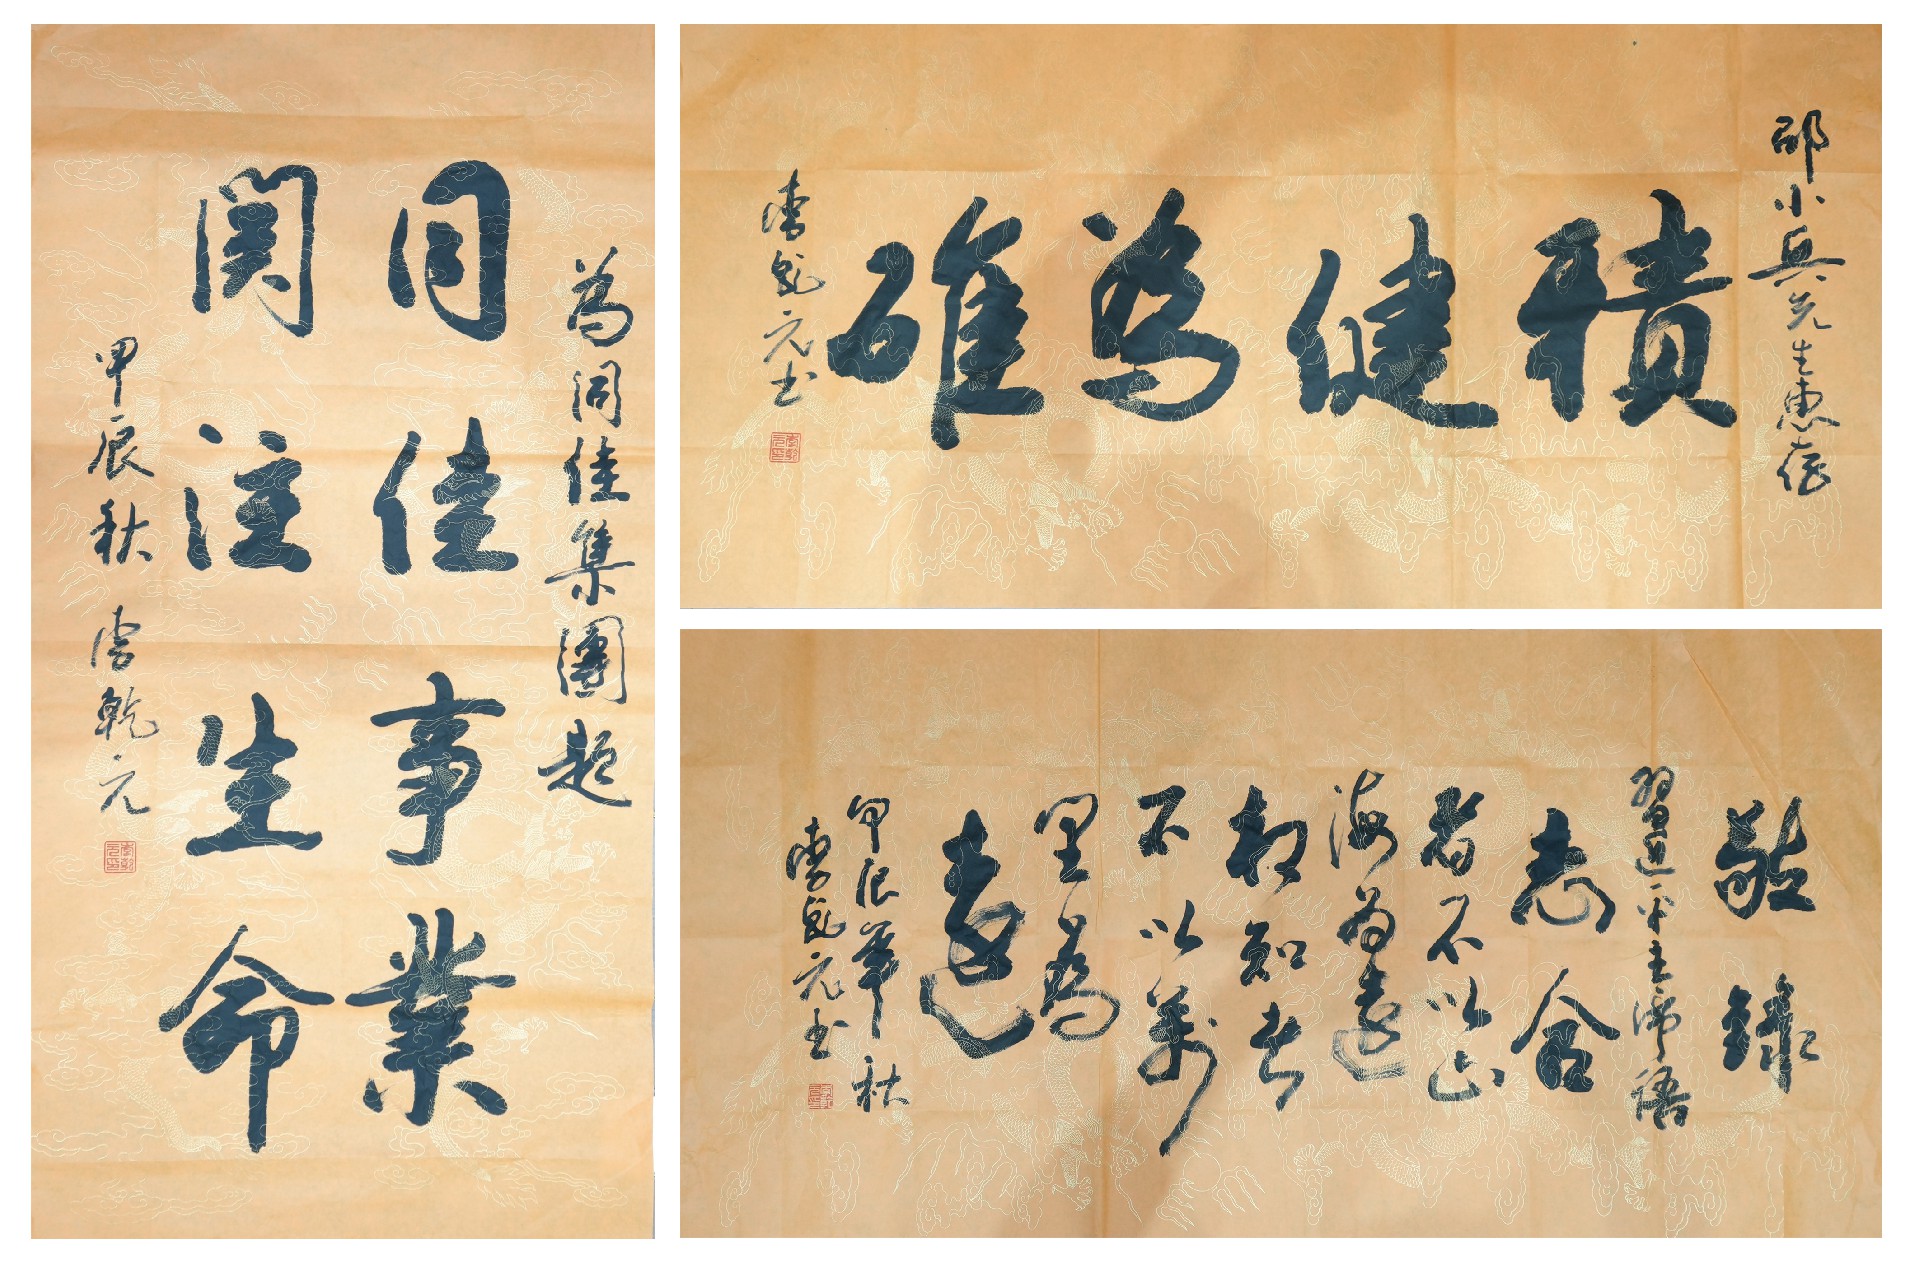 為同佳集團題
同佳事業
関注生命
甲辰秋 李乾元
邵小兵先生惠存
積健為雄
李乾元书
敬錄
習近平主席語
志合
者不以山
海為遠
相知者
不以萬
里為
遠
甲辰年秋
李乾元书